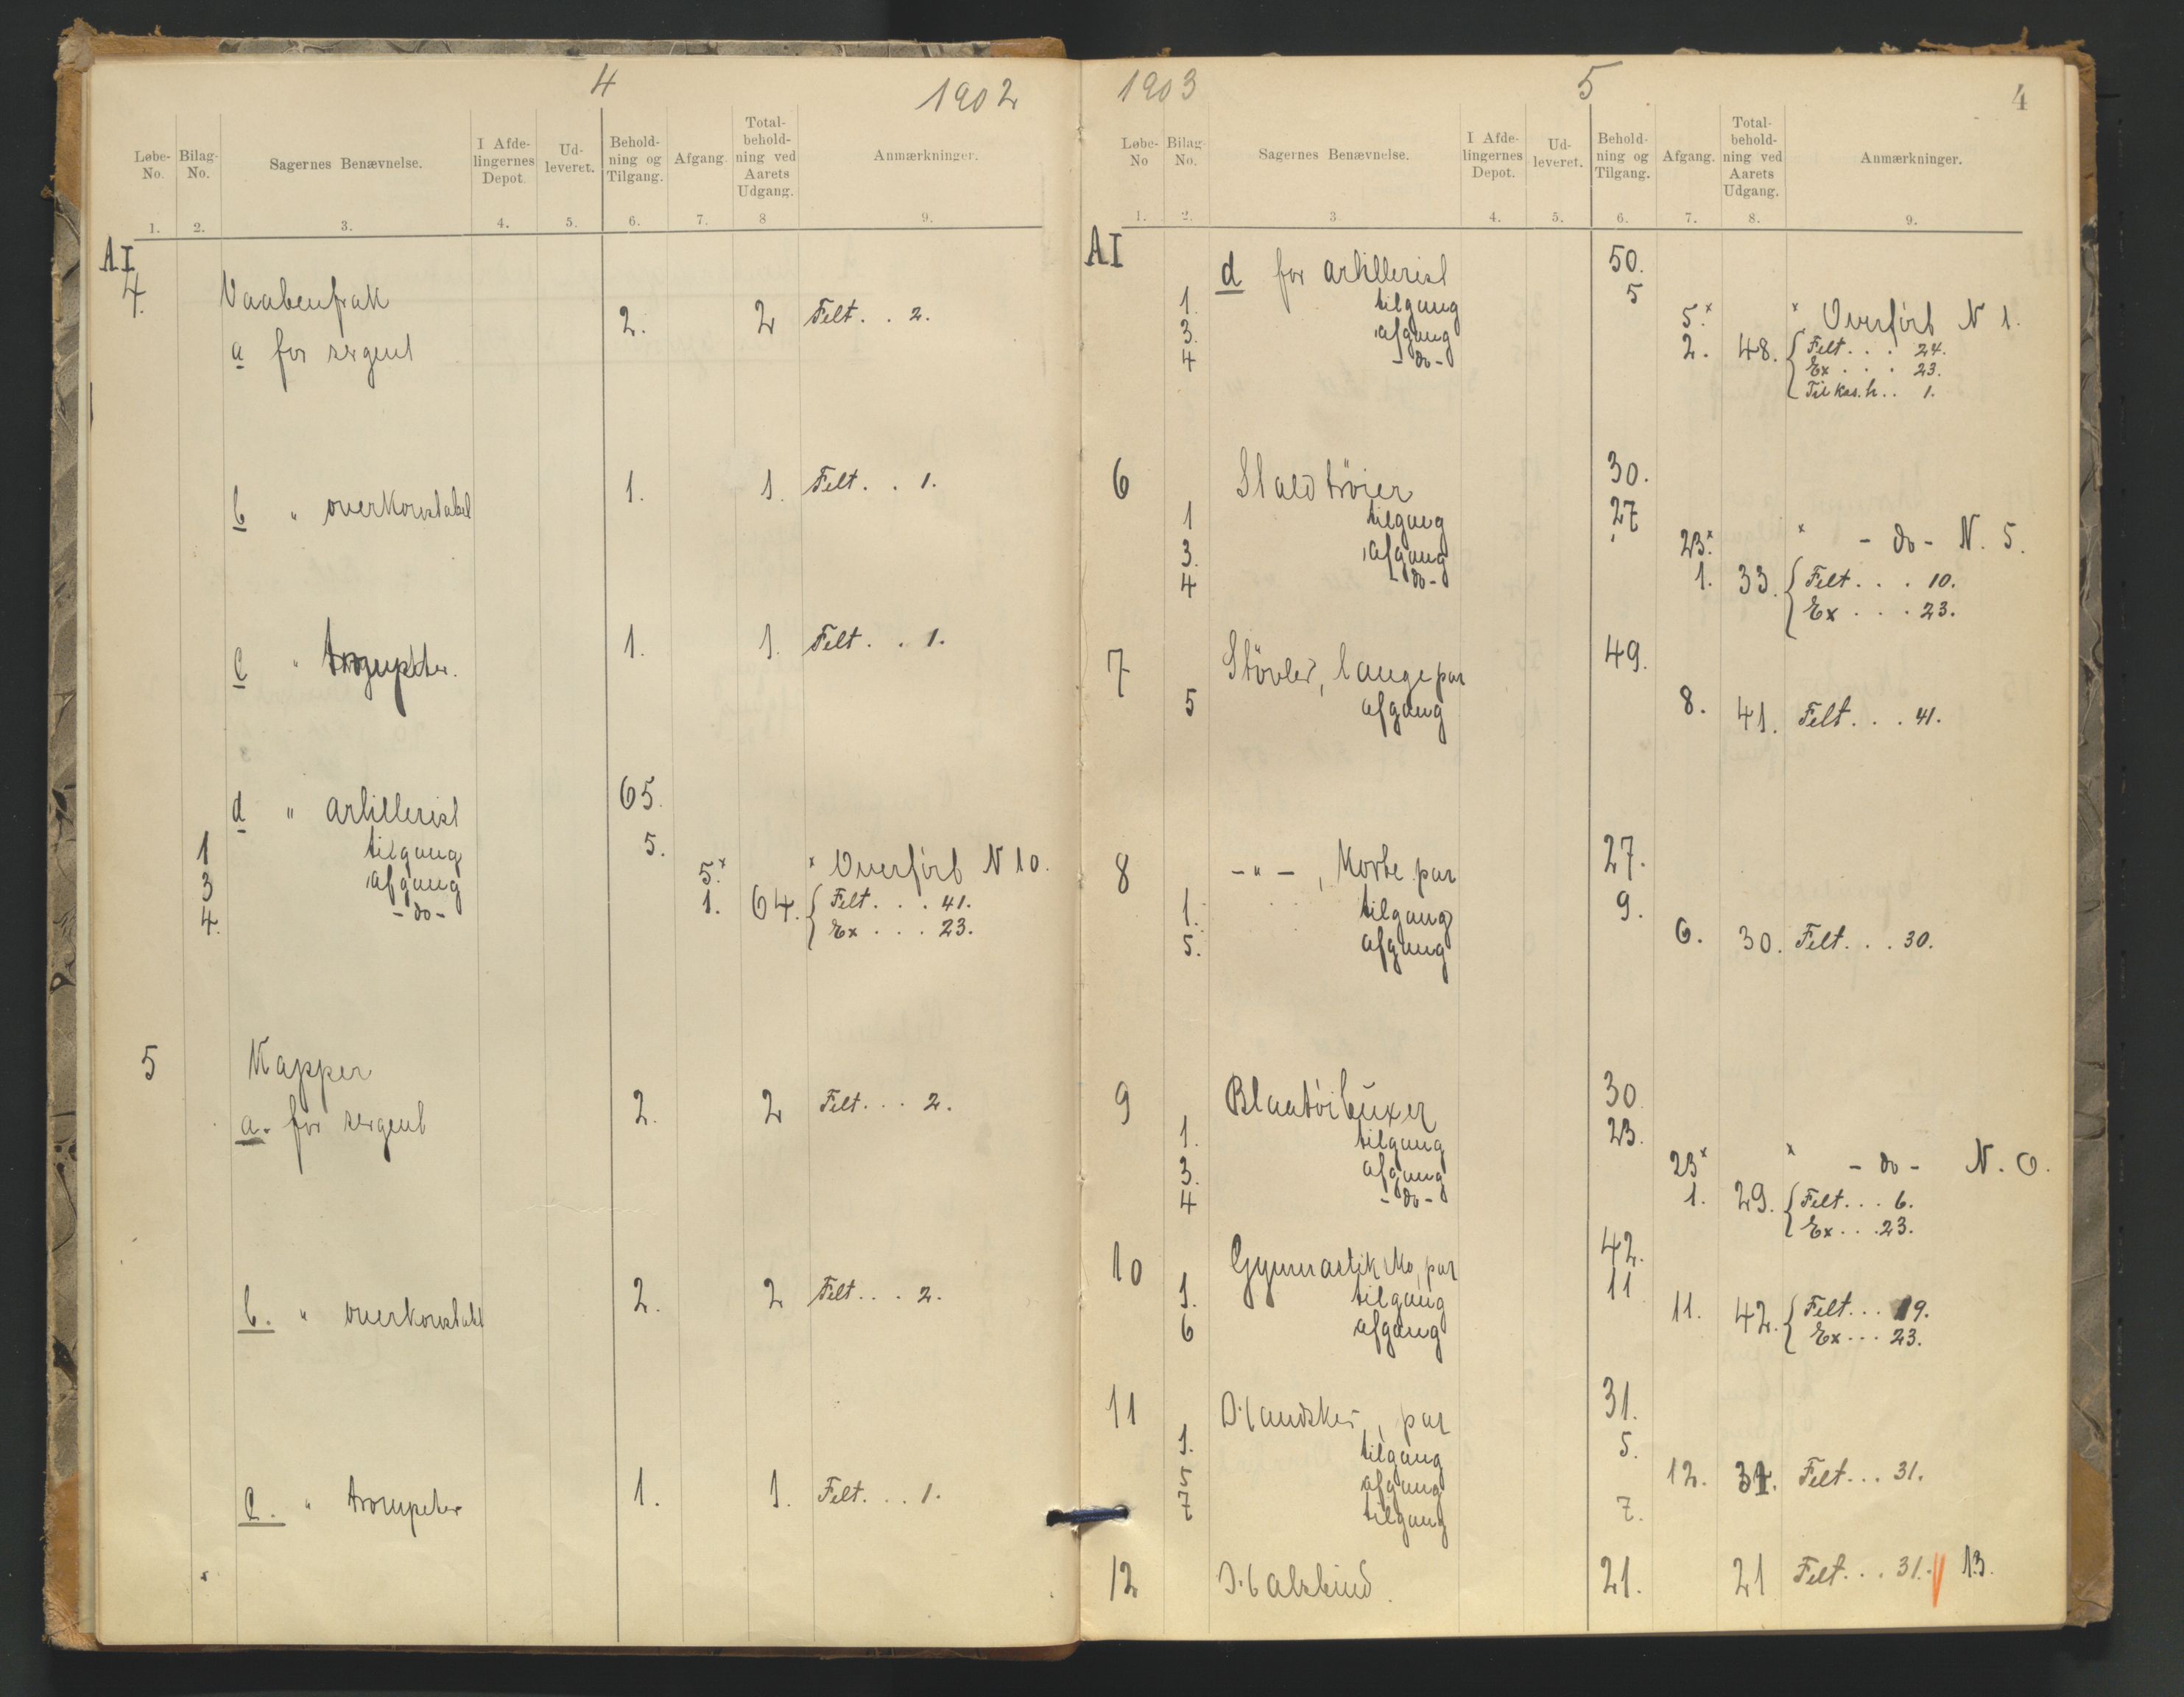 4
1902
Løbe-No. Bilag-No. Sagernes Benævnelse. I Afdelingernes Depot. Udleveret. Beholdning og Tilgang. Afgang. Totalbeholdning ved Aarets Udgang. Anmærkninger.
1. 2. 3. 4. 5. 6. 7. 8 9.
AI
4. Vaabenfrak
a for sergent 2. 2 Felt . . 2.
b " overkonstabel 1. 1. Felt . . 1.
c " trompeter. 1. 1. Felt . . 1.
d " artillerist 65.
1 tilgang 5.
3 afgang 5.x x Overført N 10.
4. - do - 1. 64. { Felt . . . 41.
Ex . . . 23.
5 Kapper
a. for sergent 2. 2 Felt . . . 2.
b. " overkonstabel 2. 2 Felt . . . 2.
c. " trompeter 1. 1. Felt . . . 1.
1903
5
4
Løbe-No Bilag-No. Sagernes Benævnelse. I Afdelingernes Depot. Udleveret. Beholdning og Tilgang. Afgang. Totalbeholdning ved Aarets Udgang. Anmærkninger.
1. 2. 3. 4. 5. 6. 7. 8. 9.
AI
d for artillerist 50.
1. tilgang 5
3. afgang 5.x x Overført N 1.
4 - do - 2. 48. { Felt . . . 24.
Ex . . . 23.
Til kas. h . . 1.
6 Staldtröier 30.
1 tilgang 27
3. afgang 23.x x - do - N. 5.
4 - do - 1. 33. { Felt . . . 10.
Ex . . . 23.
7 Stövler, lange par 49.
5 afgang 8. 41. Felt . . . 41.
8 - " - , korte par 27.
1. tilgang 9.
5. afgang 6. 30. Felt . . . 30.
9 Blaatöibuxer 30
1. tilgang 23.
3. afgang 23x x - do - N. 6.
4 - do - 1. 29. { Felt . . . 6.
Ex . . . 23.
10 Gymnastiksko, par 42.
1. tilgang 11
6 afgang 11. 42. { Felt . . . 19.
Ex . . . 23.
11 Handsker, par 31.
1. tilgang 5.
5 afgang 12. 31. Felt . . . 31.
7 tilgang 7.
12 Halsbind. 21. 21 Felt . . . 31. 13.